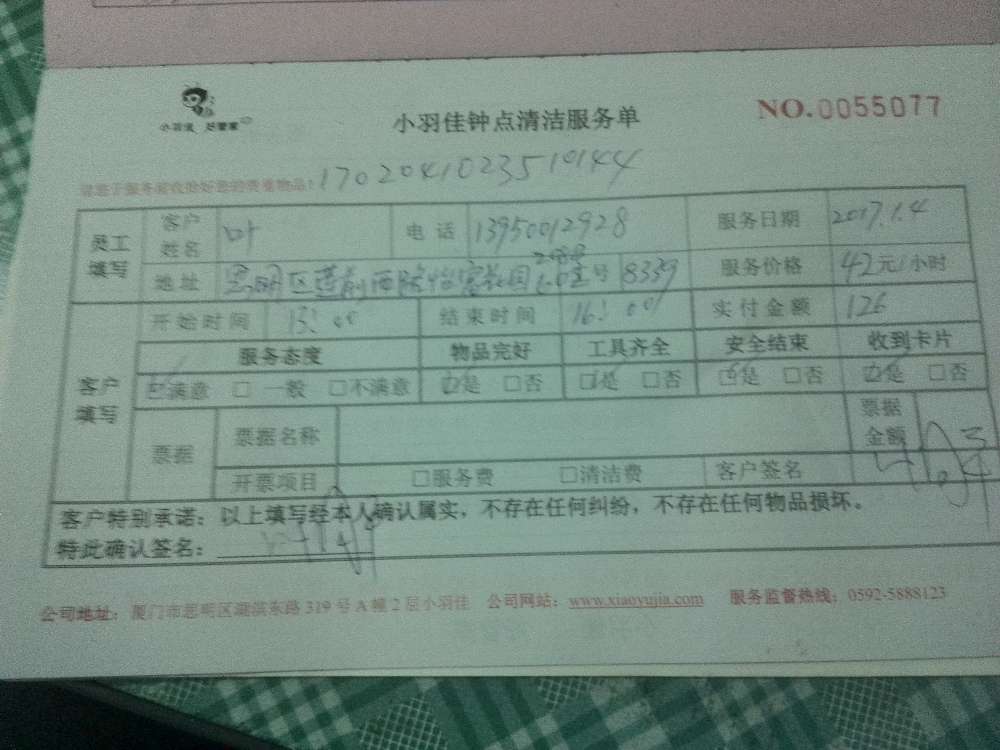 小羽佳 好管家
小羽佳钟点清洁服务单
NO.0055077
请您于服务前收拾好您的贵重物品! 1702041023510144
员工填写 客户姓名 叶 电话 13950012928 服务日期 2017.1.4
地址 思明区莲前西路 号 8339 服务价格 42元/小时
客户填写 开始时间 13:00 结束时间 16:00 实付金额 126
服务态度 物品完好 工具齐全 安全结束 收到卡片
☑满意 □一般 □不满意 ☑是 □否 ☑是 □否 ☑是 □否 ☑是 □否
票据 票据名称 票据金额
开票项目 □服务费 □清洁费 客户签名
客户特别承诺：以上填写经本人确认属实，不存在任何纠纷，不存在任何物品损坏。
特此确认签名：
公司地址：厦门市思明区湖滨东路319号A幢2层小羽佳 公司网站：www.xiaoyujia.com 服务监督热线：0592-5888123